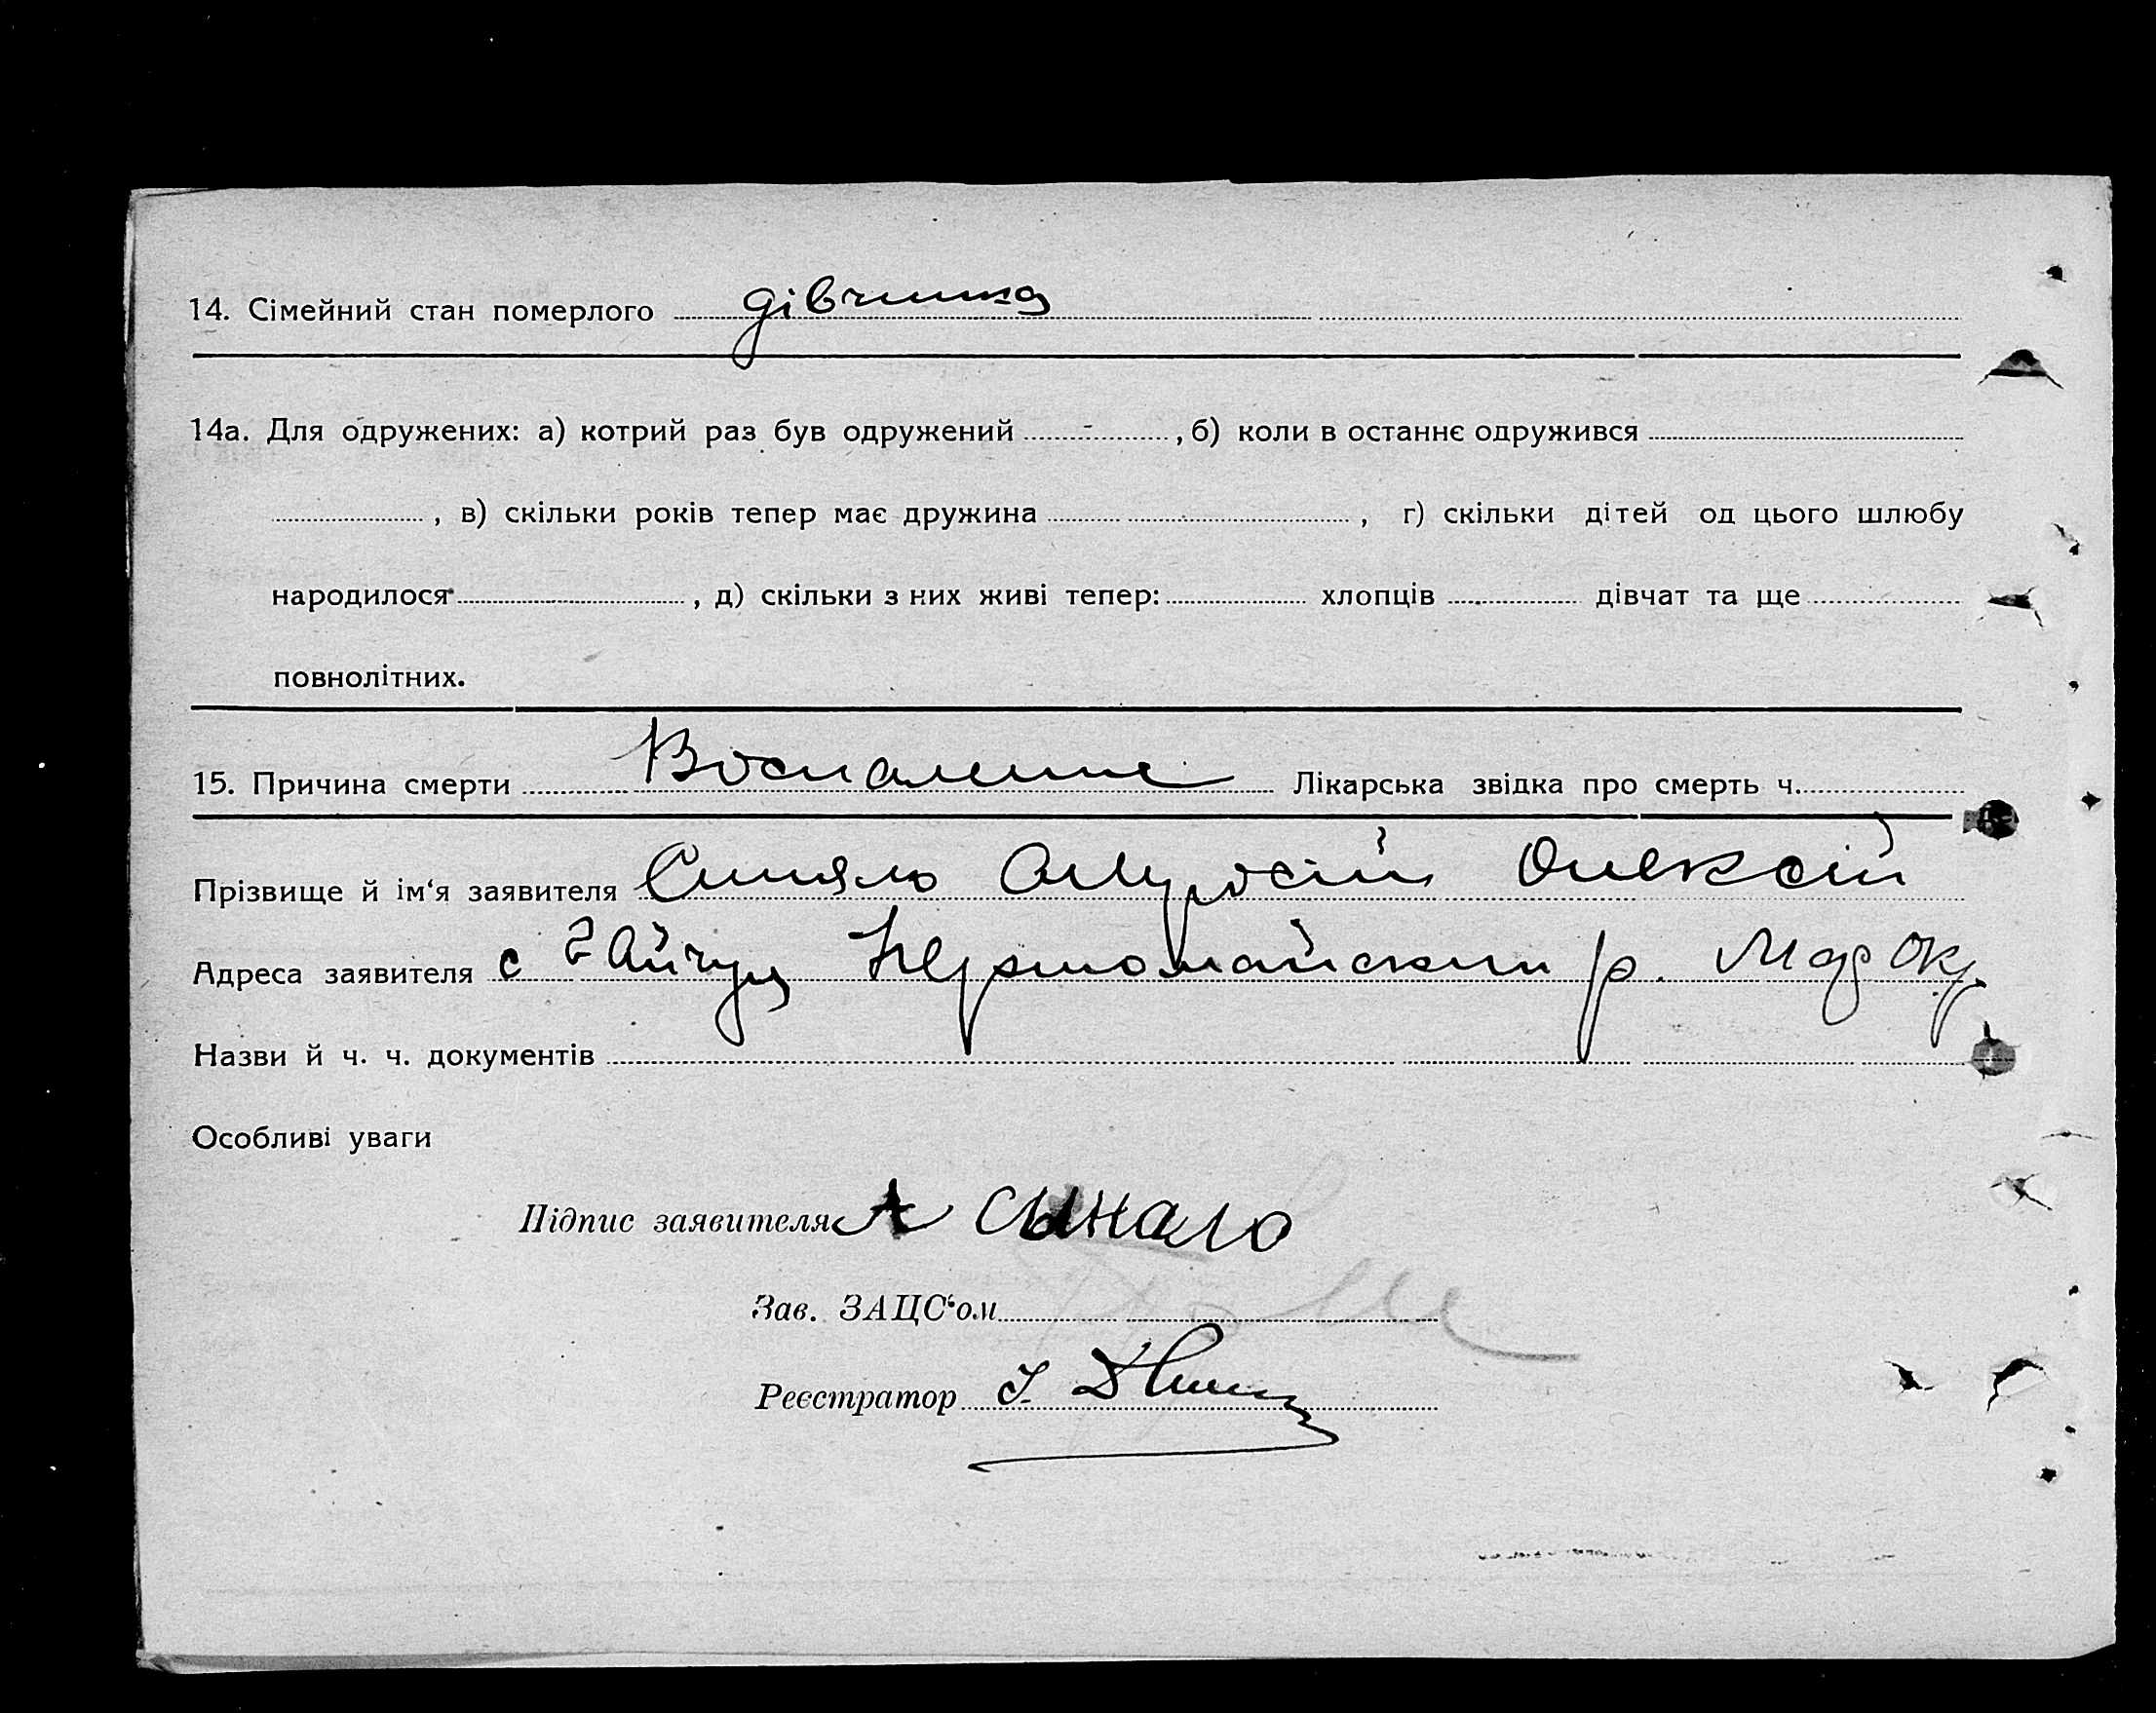 14. Сімейний стан померлого дівчина
14а. Для одружених: а) котрий раз був одружений - , б) коли в останнє одружився
, в) скільки років тепер має дружина , г) скільки дітей од цього шлюбу
народилося , д) скільки з них живі тепер: хлопців дівчат та ще
повнолітних.
15. Причина смерти Воспаление Лікарська звідка про смерть ч.
Прізвище й ім‘я заявителя Синяло Олексій
Адреса заявителя с Гайчул Першомайский р. Мар Окр
Назви й ч. ч. документів
Особливі уваги
Підпис заявителя А сынало
Зав. ЗАЦС‘ом
Реєстратор